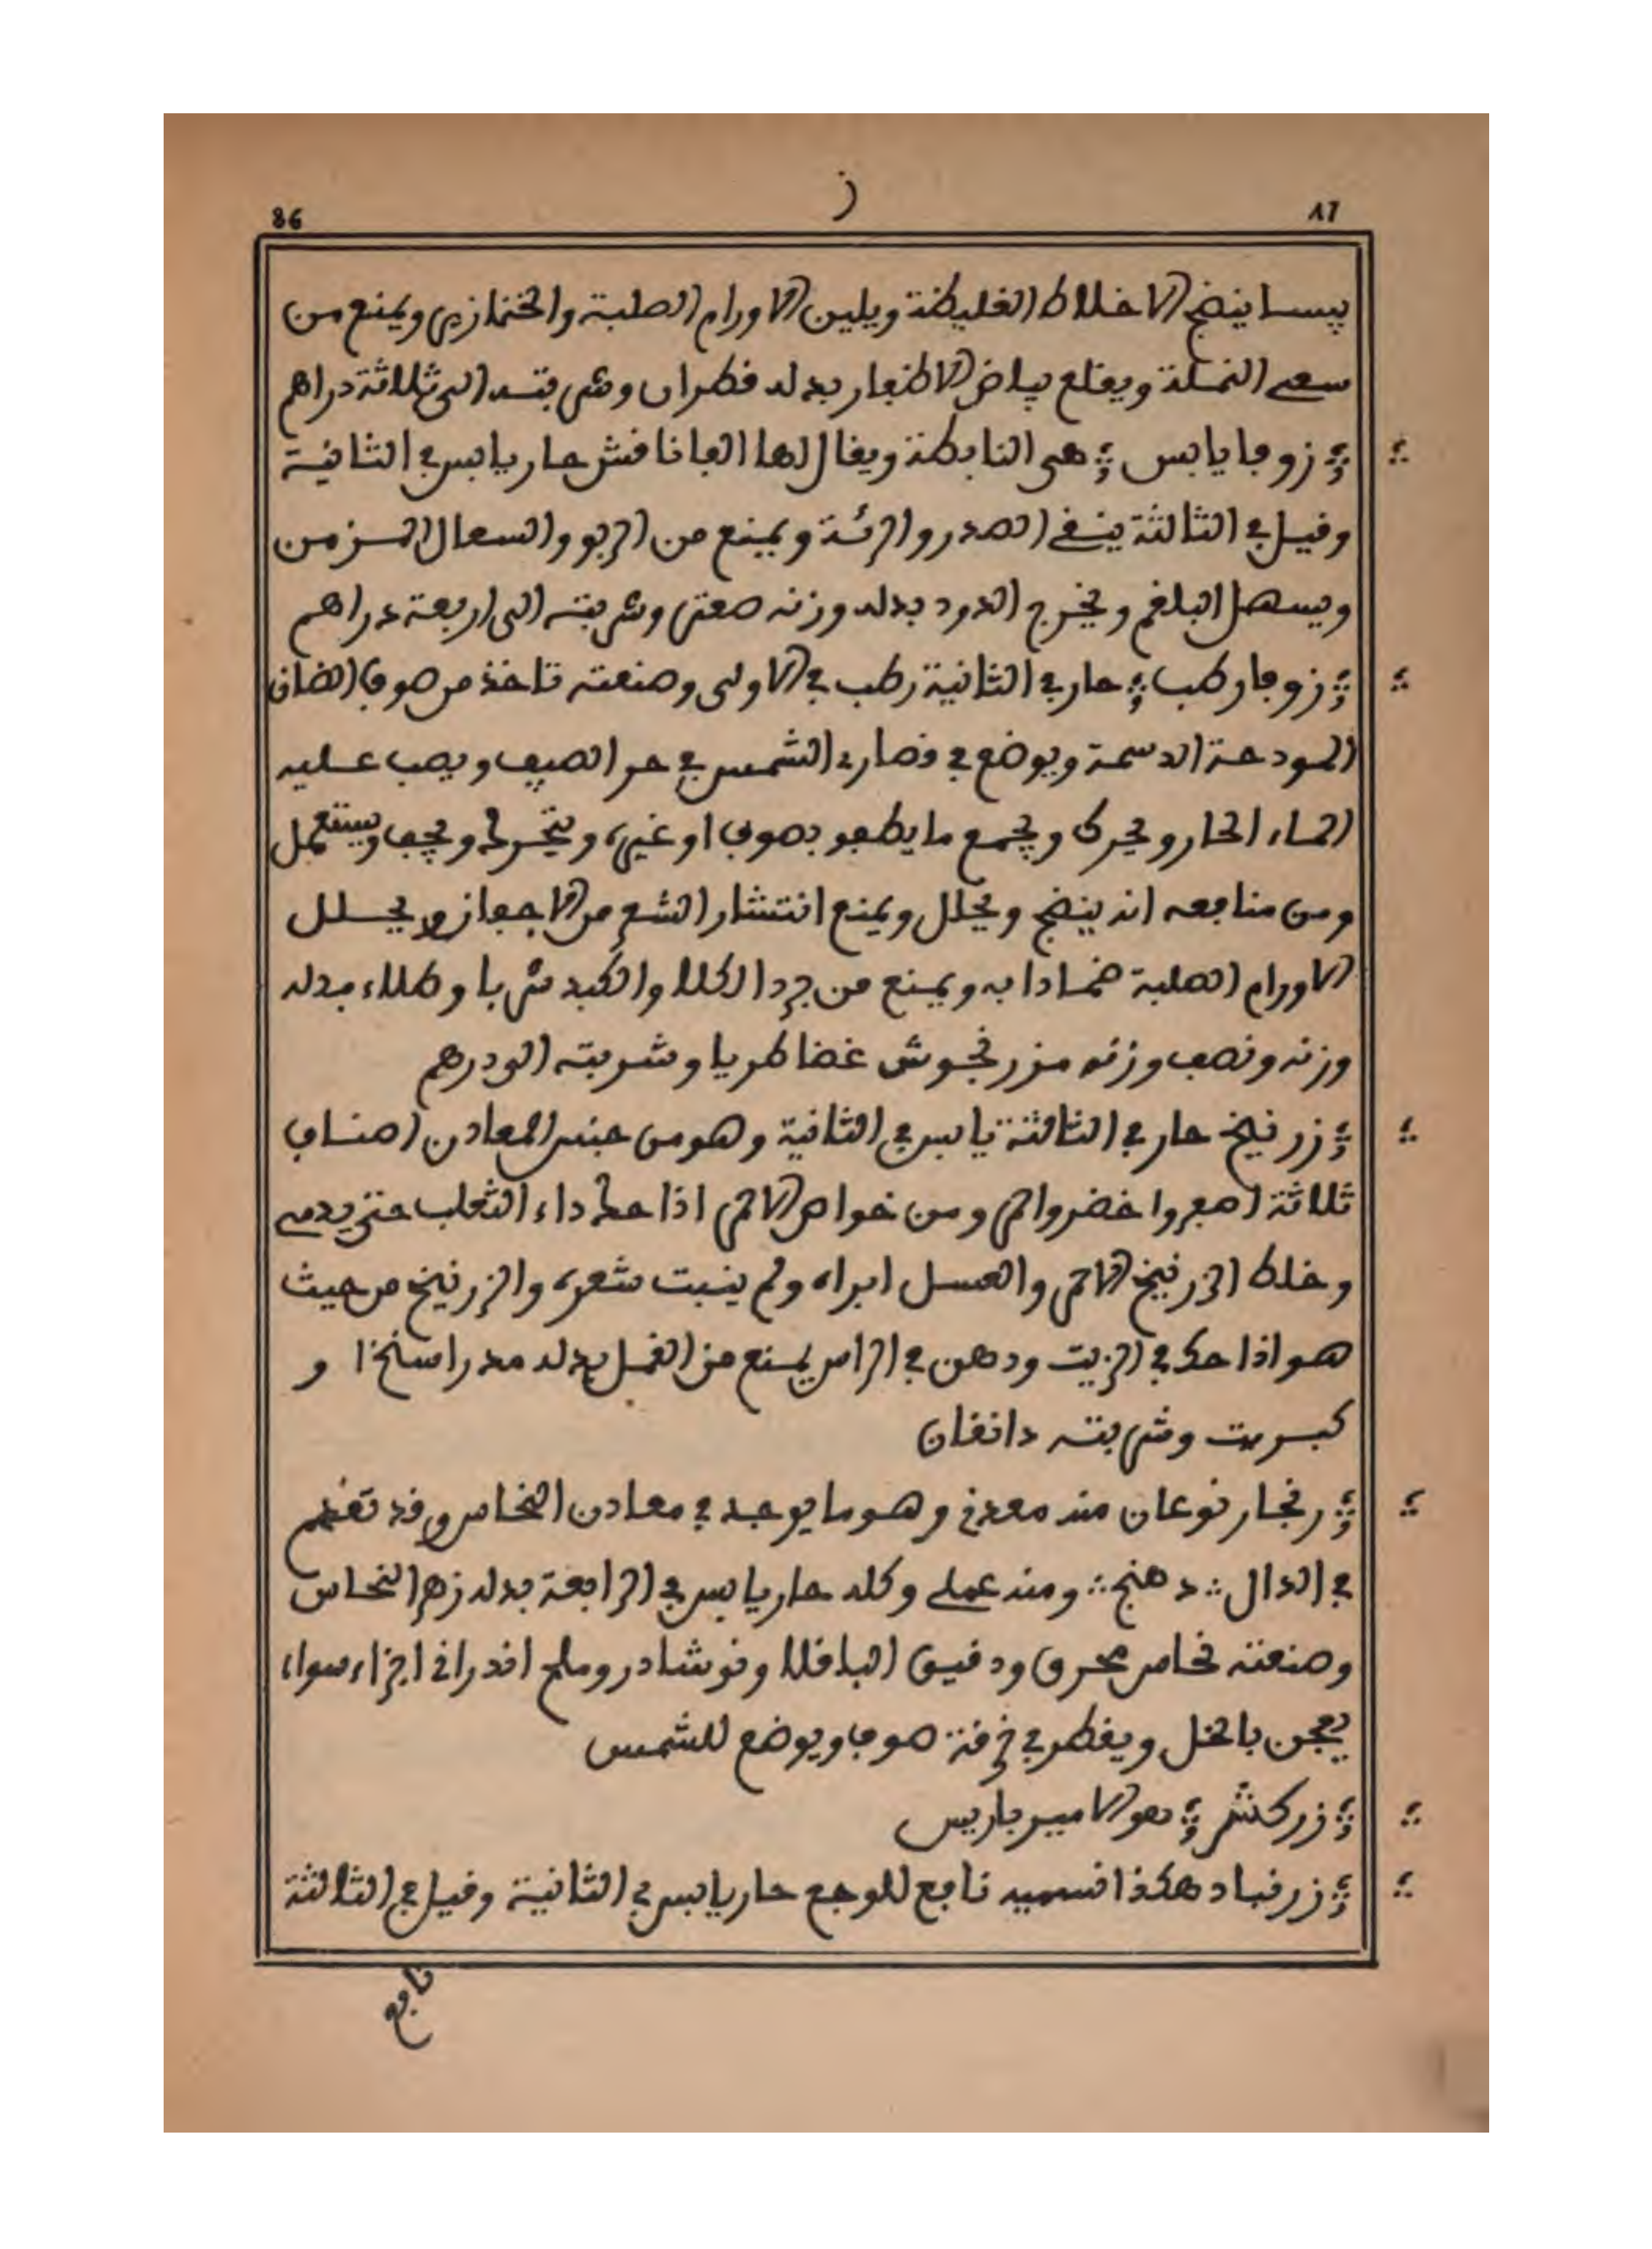 ٨٦
ز
86
يبسا ينضج الاخلاط الغليظة ويلين الاورام الصلبة والخنازير ويمنع من
سعي النملة ويقلع بياض الاظفار بدله قطران وشربته الى ثلاثة دراهم
زوفا يابس هي النابطة ويقال لها الغافافش حار يابس في الثانية
وقيل في الثالثة ينقي الصدر والرئة ويمنع من الربو والسعال المزمن
ويسهل البلغم ويخرج الدود بدله وزنه صعتر وشربته الى اربعة دراهم
زوفا رطب حار في الثانية رطب في الاولى وصنعته تاخذ من صوف الضان
المودحة الدسمة ويوضع في قصارى الشمس في حر الصيف ويصب عليه
الماء الحار ويحرك ويجمع ما يطفو بصوف او غيره ويتحرك ويجفف ويستعمل
ومن منافعه انه ينضج ويحلل ويمنع انتشار الشعر من الاجفان ويحلل
الاورام الصلبة ضمادا به ويمنع من برد الكلا والكبد شربا وطلاء بدله
وزنه ونصف وزنه مزرنجوش غضا طريا وشربته الى درهم
زرنيخ حار في الثالثة يابس في الثانية وهو من جنس المعادن اصناف
ثلاثة اصفر واخضر واحمر ومن خواص الاحمر اذا حك داء الثعلب حتى يدمى
وخلط الزرنيخ الاحمر والعسل ابراه ولم ينبت شعره والزرنيخ من حيث
هو اذا حك في الزيت ودهن في الراس يمنع من القمل بدله مدراسنخا و
كبريت وشربته دانقان
زنجار نوعان منه معدني وهو ما يوجد في معادن النحاس وقد تقدم
في الدال دهنج ومنه عملي وكله حار يابس في الرابعة بدله زهر النحاس
وصنعته نحاس محرق ودقيق الباقلا ونوشادر وملح اندراني اجزاء سواء
يعجن بالخل ويقطر في خرقة صوف ويوضع للشمس
زركش هو الاميرباريس
زرنباد هكذا نسميه نافع للوجع حار يابس في الثانية وقيل في الثالثة
نافع